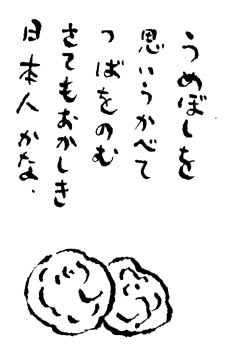 うめぼしを
思いうかべて
つばをのむ
さてもおかしき
日本人かな、